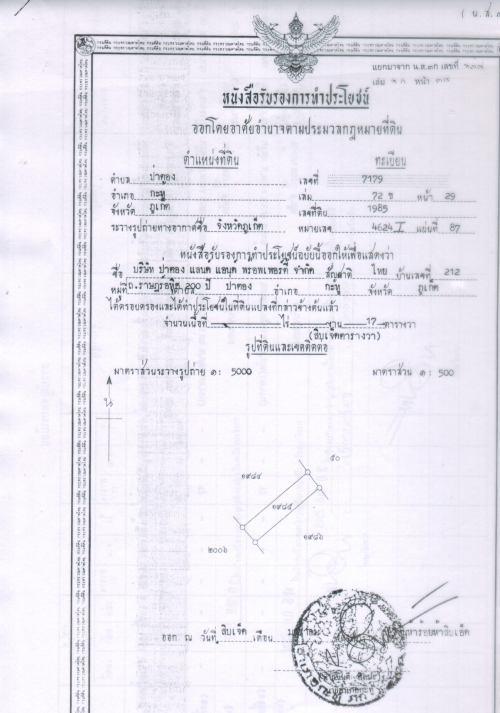 ( น.ส.
แยกมาจาก น.ส.๓ก เลขที่
เล่ม ๖ก หน้า
หนังสือรับรองการทำประโยชน์
ออกโดยอาศัยอำนาจตามประมวลกฎหมายที่ดิน
ตำแหน่งที่ดิน ทะเบียน
ตำบล ป่าตอง เลขที่ 7179
อำเภอ กะทู้ เล่ม 72 ข หน้า 29
จังหวัด ภูเก็ต เลขที่ดิน 1985
ระวางรูปถ่ายทางอากาศชื่อ จังหวัดภูเก็ต หมายเลข 4624 I แผ่นที่ 87
หนังสือรับรองการทำประโยชน์ฉบับนี้ออกให้เพื่อแสดงว่า
ชื่อ บริษัท ป่าตอง แลนด แอนด พรอพเพอร์ตี้ จำกัด สัญชาติ ไทย บ้านเลขที่ 212
หมู่ที่ ถ.ราษฎร์อุทิศ 200 ปี ตำบล ป่าตอง อำเภอ กะทู้ จังหวัด ภูเก็ต
ได้ครอบครองและได้ทำประโยชน์ในที่ดินแปลงที่กล่าวข้างต้นแล้ว
จำนวนเนื้อที่ - ไร่ - งาน 17 ตารางวา
(สิบเจ็ดตารางวา)
รูปที่ดินและเขตติดต่อ
มาตราส่วนระวางรูปถ่าย ๑: 5000 มาตราส่วน ๑: 500
น
๕๐
๑๙๘๔
๑๙๘๕
๑๙๘๖
๒๐๐๖
ออก ณ วันที่ สิบเจ็ด เดือน